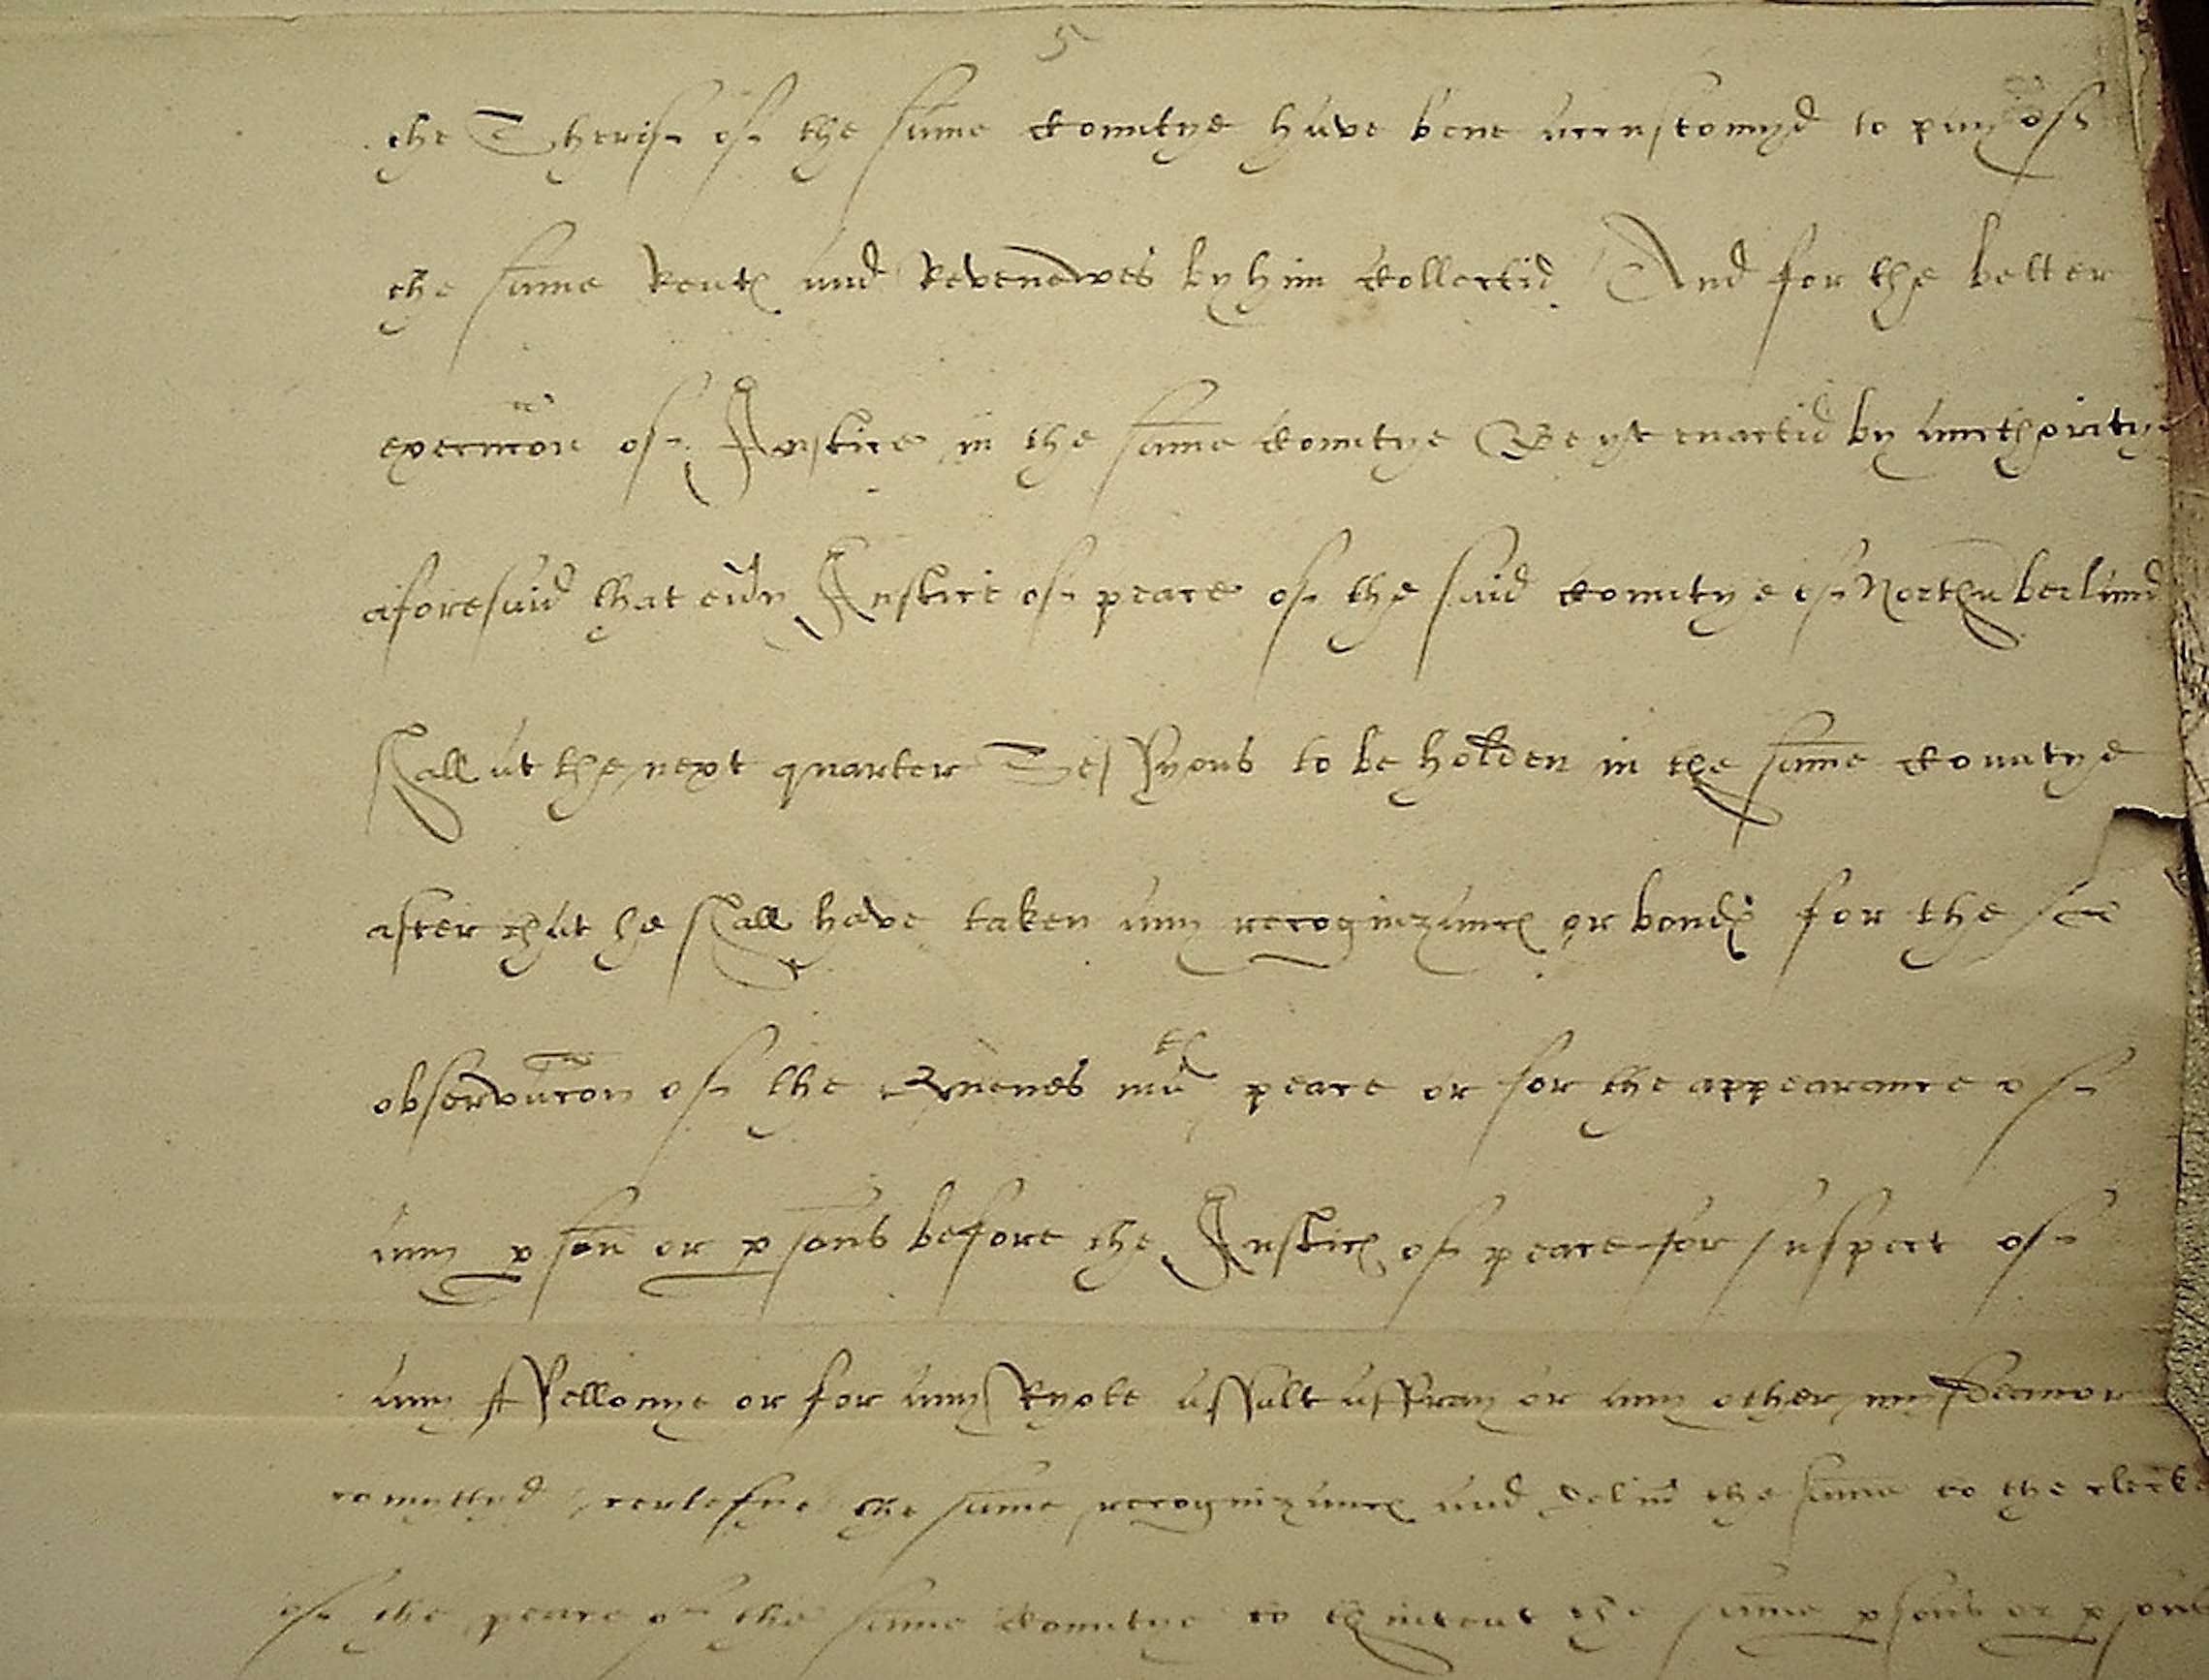 5
the Sherif of the same Countye have bene accustomyd to pay of
the same Rentes and Revenewes by him Collectid And for the better
execucõn of Justice in the same Countye Be yt enactid by aucthoritye
aforesaid that evȳ Justice of peace of the said Countye of Northūberland
shall at the next quarter Sessyons to be holden in the same Countye
after that he shall have taken any recognizances or bondes for the
observacõn of the Quenes matēs peace or for the appearance of
any pson or psons before the Justices of peace for suspect of
any ffellonye or for any Ryote assalt affray or any other mysdeamor
comyttyd certefye the same recognizances and delivˀ the same to the clerke
of the peace of the same Countye to thintent the same psons or psons